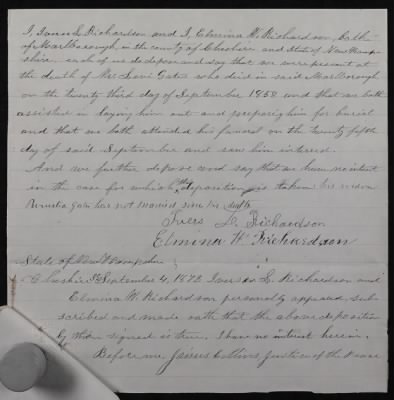 I, Ivers L. Richardson and I, Elmina W. Richardson, both
of Marlborough, in the county of Cheshire and State of New Hamp-
shire, each of us depose and say that we were present at
the death of Mr. Levi Gates who died in said Marlborough
on the twenty third day of September 1858 and that we both
assisted in laying him out and preparing him for burial
and that we both attended his funeral on the twenty fifth
day of said September and saw him interred.
And we further depose and say that we have no interest
in the case for which this deposition is taken his widow
Gates has not married since his death
Ivers L. Richardson
Elmina W. Richardson
State of New Hampshire
Cheshire Ss September 4, 1873 Ivers L. Richardson and
Elmina W. Richardson personally appeared, sub-
scribed and made oath that the above deposition
by them signed is true. I have no interest herein.
Before me, Collins Justice of the Peace